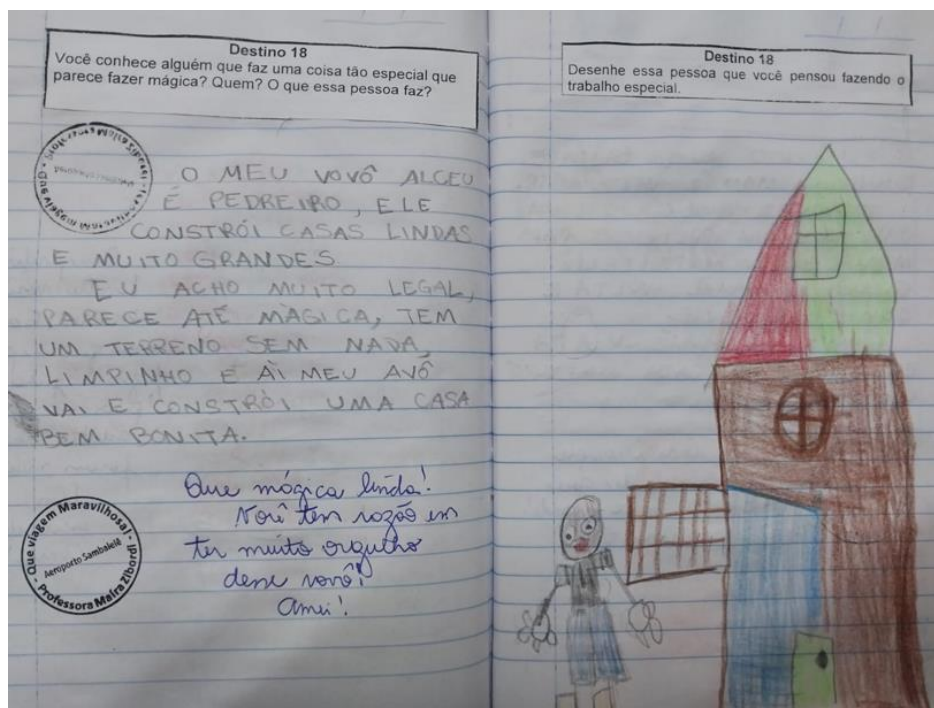 Destino 18
Você conhece alguém que faz uma coisa tão especial que
parece fazer mágica? Quem? O que essa pessoa faz?
O MEU VOVÔ ALCEU
É PEDREIRO, ELE
CONSTRÓI CASAS LINDAS
E MUITO GRANDES.
EU ACHO MUITO LEGAL,
PARECE ATÉ MÀGICA, TEM
UM TERRENO SEM NADA,
LIMPINHO E AÌ MEU AVÔ
VAI E CONSTRÓI UMA CASA
BEM BONITA.
Que mágica linda!
Você tem razão em
ter muito orgulho
desse vovô!
Amei!
Que viagem Maravilhosa!
Aeroporto Sambalelê
Professora Maíra Zibordi
Destino 18
Desenhe essa pessoa que você pensou fazendo o
trabalho especial.